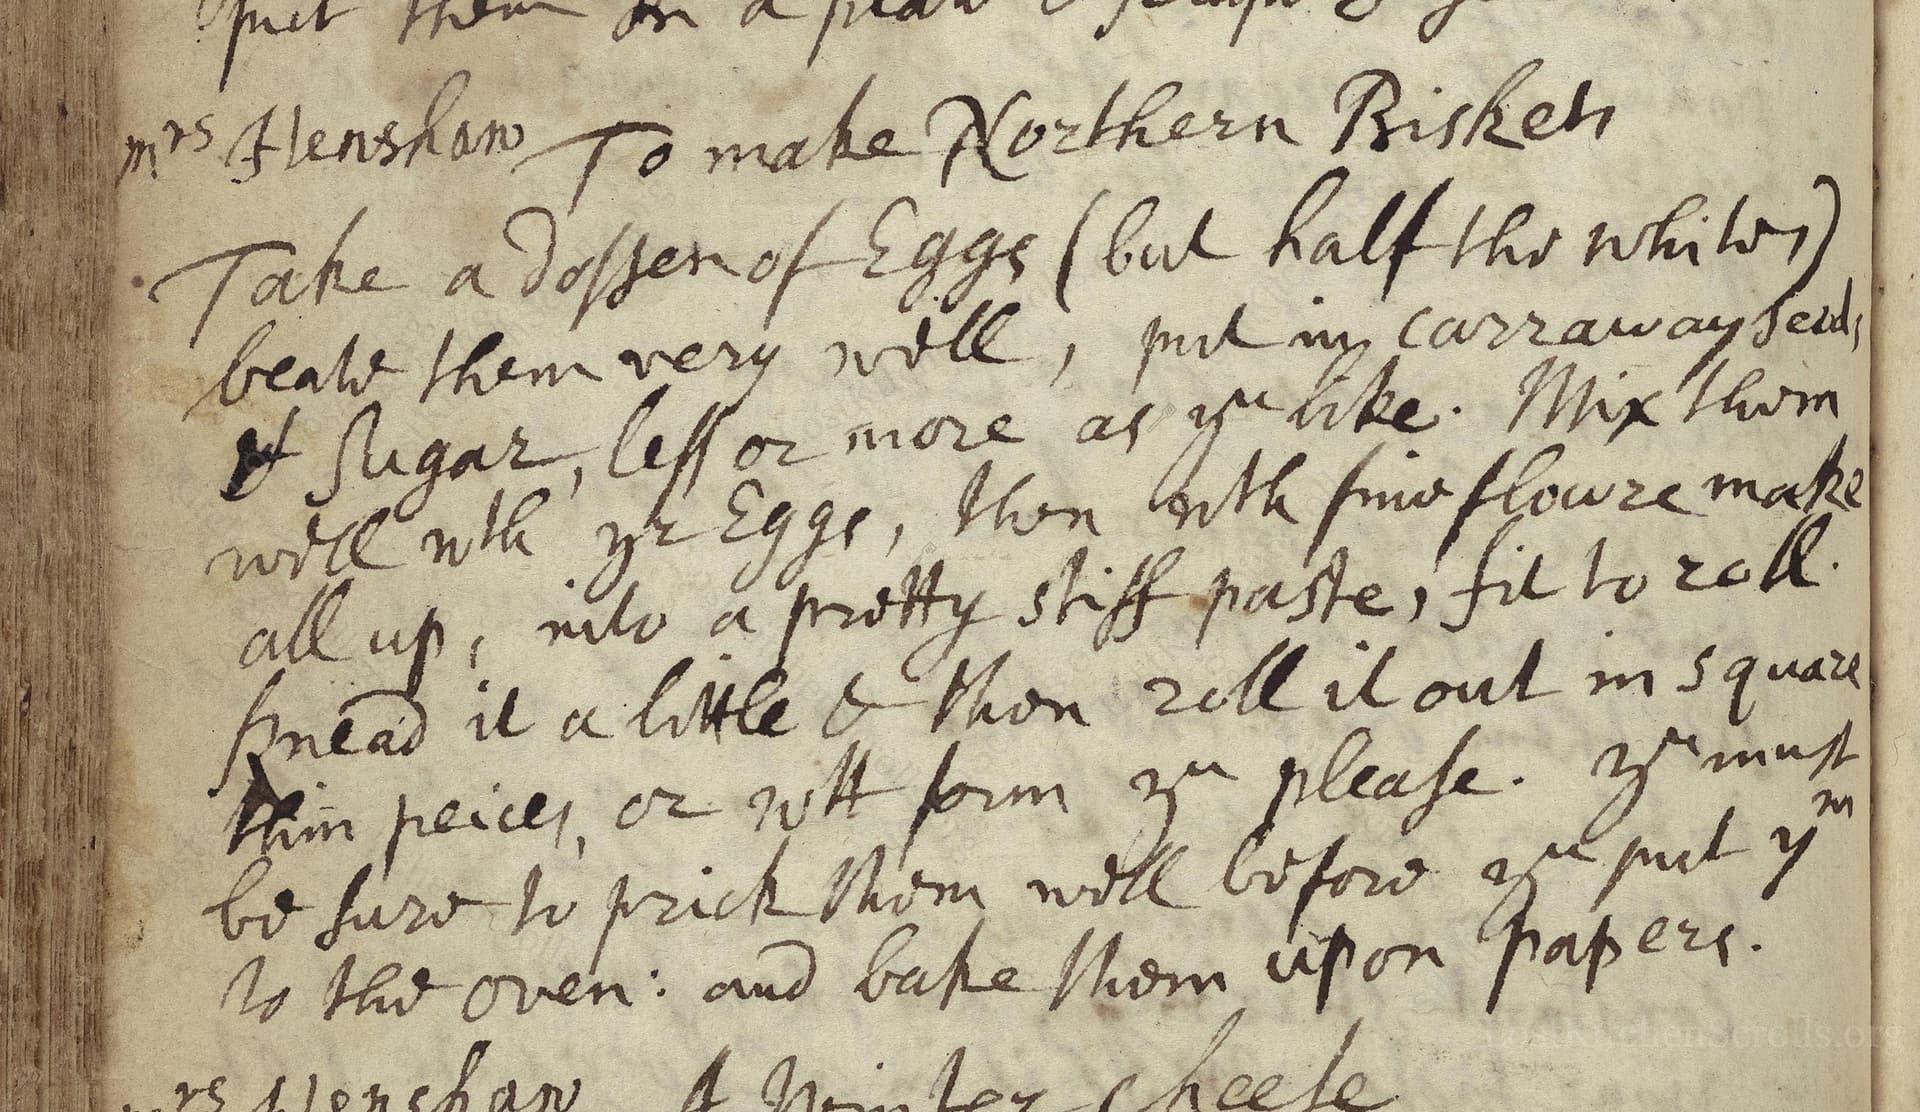 put them in a
mrs Henshaw To make Northern Biskets
Take a dossen of Eggs (but half the whites)
beate them very well, put in carraway seeds
& sugar, less or more as yu like. Mix them
well wth yr Eggs, then wth fine floure make
all up, into a pretty stiff paste, fit to roll.
knead it a little & then roll it out in square
thin peices, or wtt form yu please. yu must
be sure to prick them well before yu put ym
to the oven: and bake them upon papers.
mrs Henshaw A Winter cheese
LostKitchenScrolls.org